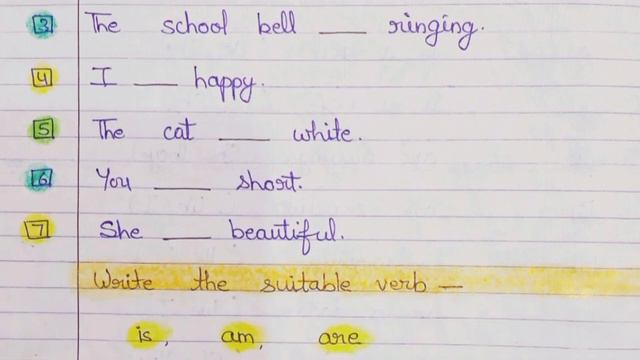 3 The school bell ___ ringing.
4 I ___ happy.
5 The cat ___ white.
6 You ___ short.
7 She ___ beautiful.
Write the suitable verb —
is, am, are